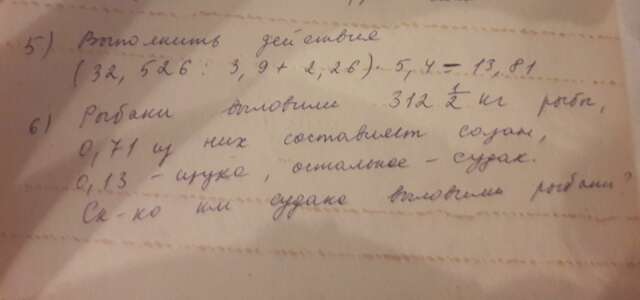 5) Выполнить действия
(32,526 : 3,9 + 2,26) · 5,4 - 13,81
6) Рыбаки выловили 312 1/2 кг рыбы,
0,71 из них составляет сазан,
0,13 - щука, остальное - судак.
Ск-ко кг судака выловили рыбаки?